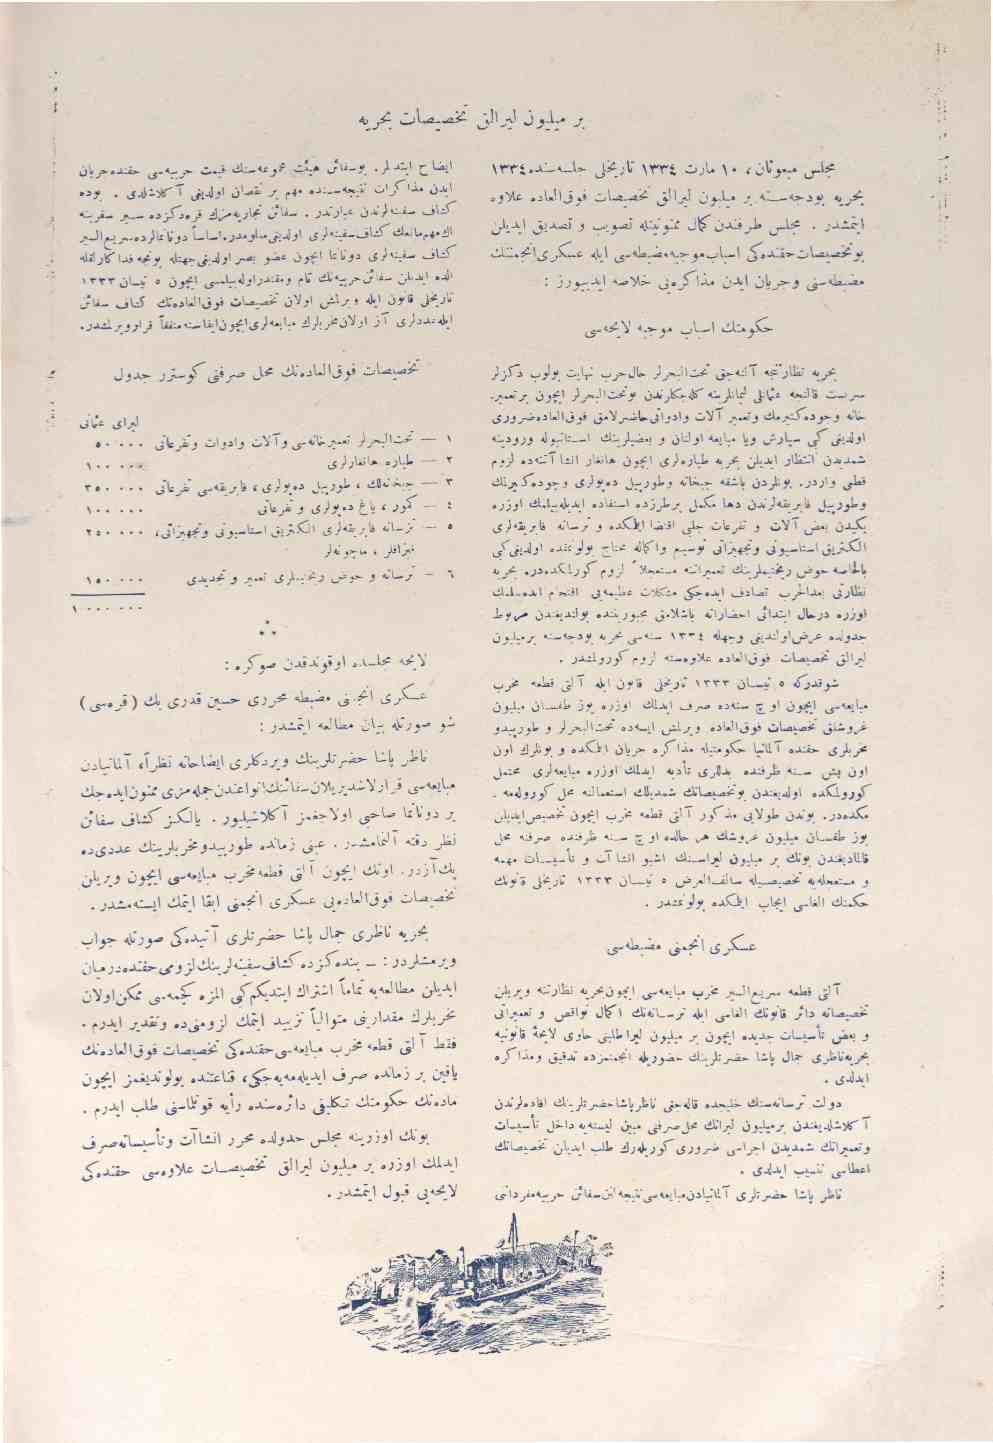 بر ميليون ليرالق تخصيصات بحريه
مجلس مبعوثان ، ١٠ مارت ١٣٣٤ تاريخلى جلسه‌سنده ١٣٣٤
بحريه بودجه‌سنه بر ميليون ليرالق تخصيصات فوق‌العاده علاوه
ايتمشدر . مجلس طرفندن كمال ممنونيتله تصويب و تصديق ايديلن
بوتخصيصات حقنده‌كى اسباب موجبه مضبطه‌سى ايله عسكرى انجمننك
مضبطه‌سنى وجريان ايدن مذاكره‌يى خلاصه ايدييورز :
حكومتك اسباب موجبه لايحه‌سى
بحريه نظارتنجه آلنه‌جق تحت‌البحرلر حال حرب نهايت بولوب دكزلر
سربست قالنجه عثمانلى ليمانلرينه كله‌جكلرندن بوتحت‌البحرلر ايچون برتعمير
خانه وجوده كتيرمك وتعمير آلات وادواتى حاضرلامق فوق‌العاده ضرورى
اولديغى كبى سپارش ويا مبايعه اولنان و بعضيلرينك استانبوله ورودينه
شمديدن انتظار ايديلن بحريه طياره‌لرى ايچون هانغار انشا آتنه‌ده لزوم
قطعى واردر. بونلردن باشقه جبخانه وطورپيل ده‌پولرى وجوده كتيرمك
وطورپيل فابريقه‌لرندن دها مكمل برطرزده استفاده ايديله‌بيلمك اوزره
يكيدن بعض آلات و تفرعات جلبى اقتضا ايتمكده و ترسانه فابريقه‌لرى
الكتريق استاسيونى وتجهيزاتى توسيع واكماله محتاج بولونمده اولديغى كبى
بالخاصه حوض ريختيملرينك تعميراتنه مستعجلاً لزوم كورلمكده‌در. بحريه
نظارتى بعدالحرب تصادف ايده‌جكى مشكلات عظيمه‌يى اقتحام ايده‌بيلمك
اوزره درحال ابتدائى احضاراته باشلامق مجبوريتنده بولنديغندن مربوط
جدولده عرض اولنديغى وجهله ١٣٣٤ سنه‌سى بحريه بودجه‌سنه برميليون
ليرالق تخصيصات فوق‌العاده علاوه‌سنه لزوم كورولمشدر .
شوقدركه ٥ نيسان ١٣٣٣ تاريخلى قانون ايله آلتى قطعه مخرب
مبايعه‌سى ايچون او چ سنه‌ده صرف ايدلمك اوزره يوز طقسان ميليون
غروشلق تخصيصات فوق‌العاده ويرلمش ايسه‌ده تحت‌البحرلر و طورپيدو
مخربلرى حقنده آلمانيا حكومتيله مذاكره جريان ايتمكده و بونلرك اون
اون بش سنه ظرفنده بدللرى تأديه ايدلمك اوزره مبايعه‌لرى محتمل
كورولمكده اولديغندن بوتخصيصاتك شمديلك استعمالنه محل كورولمه‌مه -
مكده‌در. بوندن طولايى مذكور آلتى قطعه مخرب ايچون تخصيص ايديلن
يوز طقسان ميليون غروشك هر حالده او چ سنه ظرفنده صرفنه محل
قالماديغندن بونك بر ميليون ليراسنك اشبو انشا آت و تأسيسات مهمه
و مستعجله‌يه تخصيصيله سالف‌العرض ٥ نيسان ١٣٣٣ تاريخلى قانونك
حكمنك الغاسى ايجاب ايتمكده بولونمشدر .
عسكرى انجمنى مضبطه‌سى
آلتى قطعه سريع‌السير مخرب مبايعه‌سى ايچون بحريه نظارتنه ويريلن
تخصيصاته دائر قانونك الغاسى ايله ترسانه‌نك اكمال نواقص و تعميراتى
و بعض تأسيسات جديده ايچون بر ميليون ليرا طلبى حاوى لايحۀ قانونيه
بحريه ناظرى جمال پاشا حضرتلرينك حضوريله انجمنمزده تدقيق ومذاكره
ايدلدى .
دولت ترسانه‌سنك خليجده قاله‌جغى ناظر پاشا حضرتلرينك افاده‌لرندن
آكلاشلديغندن برميليون ليرانك محل صرفنى مبين ليسته‌يه داخل تأسيسات
وتعميراتك شمديدن اجراسى ضرورى كوريله‌رك طلب ايديلن تخصيصاتك
اعطاسى تنسيب ايدلدى .
ناظر پاشا حضرتلرى آلمانيادن مبايعه‌سى نتيجه‌لنن سفائن حربيه مفرداتنى
ايضاح ايتدلر. بوسفائن هيئت عموميه‌سنك قيمت حربيه‌سى حقنده جريان
ايدن مذاكرات نتيجه‌سنده مهم بر نقصان اولديغى آكلاشلدى . بوده
كشاف سفينه‌لرندن عبارتدر. سفائن تجاريه‌مزك قره‌دكزده سير سفرينه
اك مهم مانعك كشاف سفينه‌لرى اولديغى معلومدر. اساساً دونانمالرده سريع‌السير
كشاف سفينه‌لرى دونانما ايچون عضو بصر اولديغى جهتله بونجه فداكارلقله
الده ايديلن سفائن حربيه‌نك تام ومقتدر اوله‌بيلمسى ايچون ٥ نيسان ١٣٣٣
تاريخلى قانون ايله ويرلمش اولان تخصيصات فوق‌العاده‌نك كشاف سفائن
ايله عددلرى آز اولان مخربلرك مبايعه‌لرى ايچون ابقاسنه متفقاً قرار ويرلمشدر.
تخصيصات فوق‌العاده‌نك محل صرفنى كوسترر جدول
ليراى عثمانى
١ — تحت‌البحرلر تعميرخانه‌سى وآلات وادوات وتفرعاتى ٥٠٠٠٠
٢ — طياره هانغارلرى ١٠٠٠٠٠
٣ — جبخانه‌لك ، طورپيل ده‌پولرى ، فابريقه‌سى تفرعاتى ٣٥٠٠٠٠
٤ — كمور ، ياغ ده‌پولرى و تفرعاتى ١٠٠٠٠٠
٥ — ترسانه فابريقه‌لرى الكتريق استاسيونى وتجهيزاتى، ٢٥٠٠٠٠
تيزاقلر ، ماچونه‌لر
٦ — ترسانه و حوض ريختيملرى تعمير و تجديدى ١٥٠٠٠٠
١٠٠٠٠٠٠
لايحه مجلسده اوقوندقدن صوكره :
عسكرى انجمنى مضبطه محررى حسين قدرى بك ( قره‌سى )
شو صورتله بيان مطالعه ايتمشدر :
ناظر پاشا حضرتلرينك ويردكلرى ايضاحاته نظراً آلمانيادن
مبايعه‌سى قرارلاشديريلان سفائنك انواعندن جمله‌مزى ممنون ايده‌جك
بر دونانما صاحبى اولاجغمز آكلاشيليور. يالكز كشاف سفائن
نظر دقته آلنمامشدر . عينى زمانده طورپيدو مخربلرينك عددى‌ده
پك آزدر. اونك ايچون آلتى قطعه مخرب مبايعه‌سى ايچون ويريلن
تخصيصات فوق‌العاده‌يى عسكرى انجمنى ابقا ايتمك ايسته‌مشدر .
بحريه ناظرى جمال پاشا حضرتلرى آتيده‌كى صورتله جواب
ويرمشلردر : — بنده‌كزده كشاف سفينه‌لرينك لزومى حقنده درميان
ايديلن مطالعه‌يه تماماً اشتراك ايتديكم كبى المزه كچمه‌سى ممكن اولان
تخربلرك مقدارينى متوالياً تزييد ايتمك لزومنى‌ده وتقدير ايدرم .
فقط آلتى قطعه مخرب مبايعه‌سى حقنده‌كى تخصيصات فوق‌العاده‌نك
ياقين بر زمانده صرف ايديله‌مه‌يه‌جكى، قناعتنده بولونديغمز ايچون
ماده‌نك حكومتك تكليفى دائره‌سنده رأيه قونلماسنى طلب ايدرم .
بونك اوزرينه مجلس جدولده محرر انشاآت وتأسيساته صرف
ايدلمك اوزره بر ميليون ليرالق تخصيصات علاوه‌سى حقنده‌كى
لايحه‌يى قبول ايتمشدر .